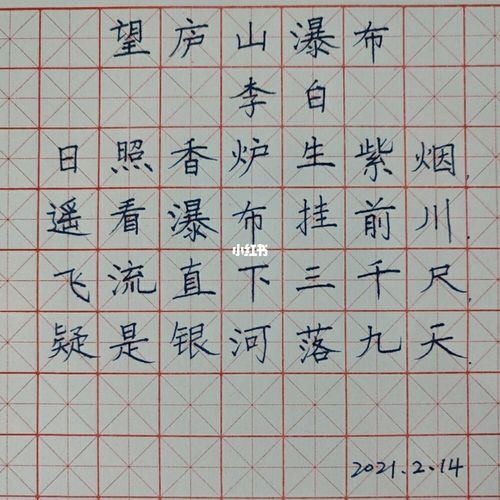 望庐山瀑布
李白
日照香炉生紫烟.
遥看瀑布挂前川.
小红书
飞流直下三千尺.
疑是银河落九天.
2021.2.14